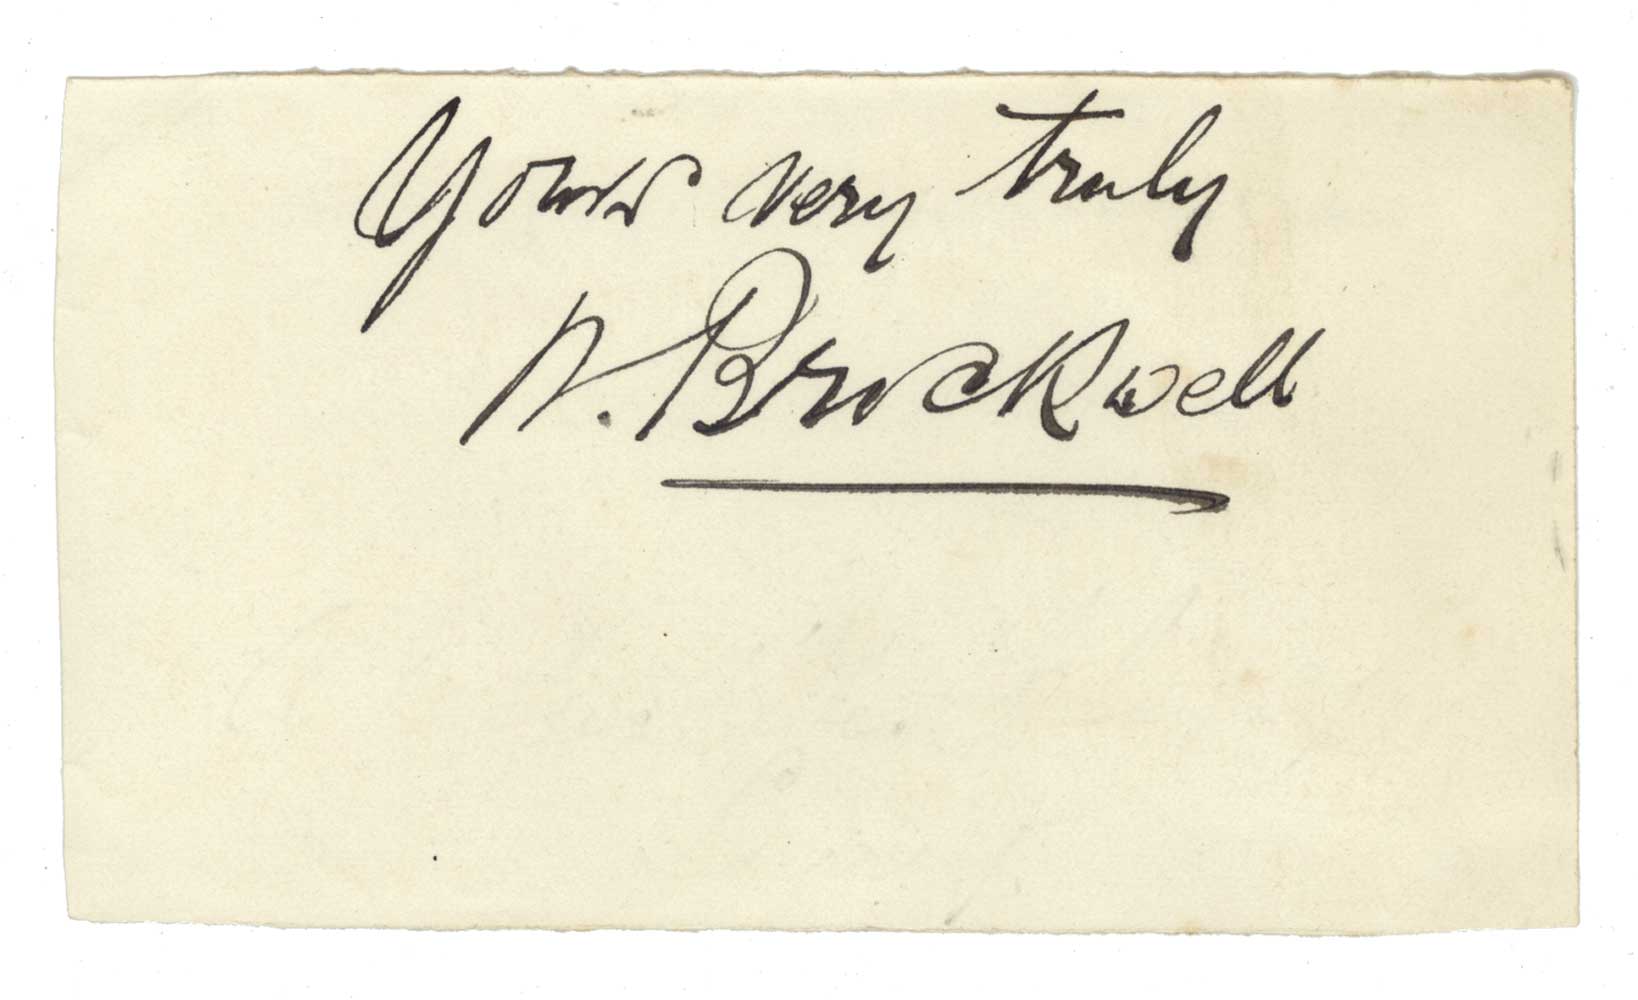 Yours very truly
W. Brockwell